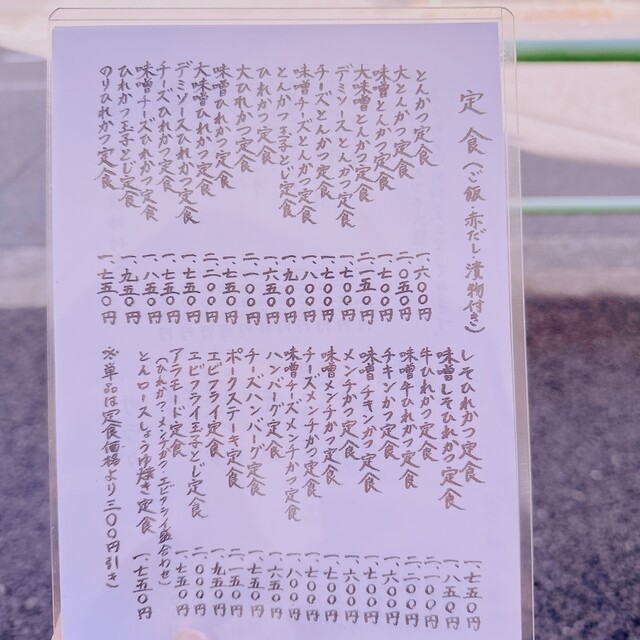 定食(ご飯・赤だし・漬物付き)
とんかつ定食 一、六〇〇円
大とんかつ定食 二、〇五〇円
味噌とんかつ定食 一、七〇〇円
大味噌とんかつ定食 二、一五〇円
デミソースとんかつ定食 一、七〇〇円
チーズとんかつ定食 一、七〇〇円
味噌チーズとんかつ定食 一、八〇〇円
とんかつ玉子とじ定食 一、九〇〇円
ひれかつ定食 一、六五〇円
大ひれかつ定食 二、一〇〇円
味噌ひれかつ定食 一、七五〇円
大味噌ひれかつ定食 二、二〇〇円
デミソースひれかつ定食 一、七五〇円
チーズひれかつ定食 一、七五〇円
味噌チーズひれかつ定食 一、八五〇円
ひれかつ玉子とじ定食 一、九五〇円
のりひれかつ定食 一、七五〇円
しそひれかつ定食 一、七五〇円
味噌しそひれかつ定食 一、八五〇円
牛ひれかつ定食 二、一〇〇円
味噌牛ひれかつ定食 二、二〇〇円
チキンかつ定食 一、六〇〇円
味噌チキンかつ定食 一、七〇〇円
メンチかつ定食 一、六〇〇円
味噌メンチかつ定食 一、七〇〇円
チーズメンチかつ定食 一、七〇〇円
味噌チーズメンチかつ定食 一、八〇〇円
ハンバーグ定食 一、六五〇円
チーズハンバーグ定食 一、七五〇円
ポークステーキ定食 二、一五〇円
エビフライ定食 一、九五〇円
エビフライ玉子とじ定食 二、〇〇〇円
アラモード定食 一、七五〇円
(ひれかつ・メンチカツ・エビフライ盛合わせ)
とんロースしょうが焼き定食 一、七五〇円
※単品は定食価格より三〇〇円引き)